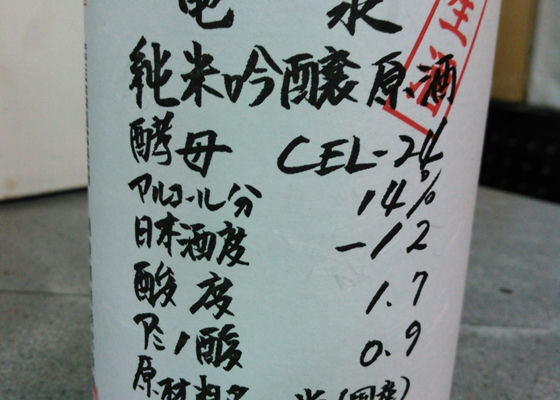 亀泉
純米吟醸原酒
生酒
酵母 CEL-24
アルコール分 14%
日本酒度 -12
酸度 1.7
アミノ酸 0.9
原材料名 米(国産)